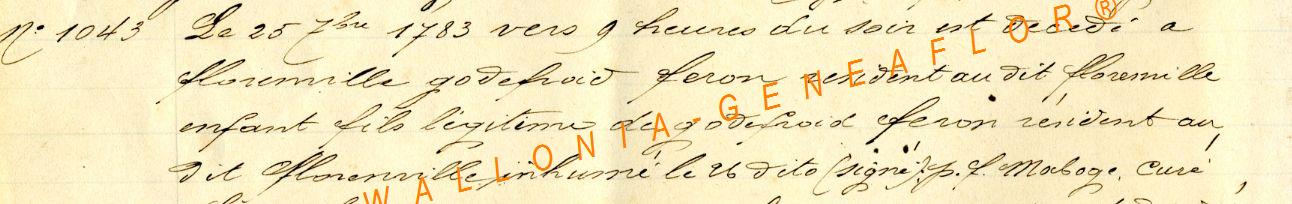 N° 1043 Le 25 7bre 1783 vers 9 heures du soir est decedé a
florenville godefroid feron resident au dit florenville
enfant fils legitime de godefroid feron résident au
dit florenville inhumé le 26 dito (signé) p. f. Maboge, curé
WALLONIA-GENEAFLOR®